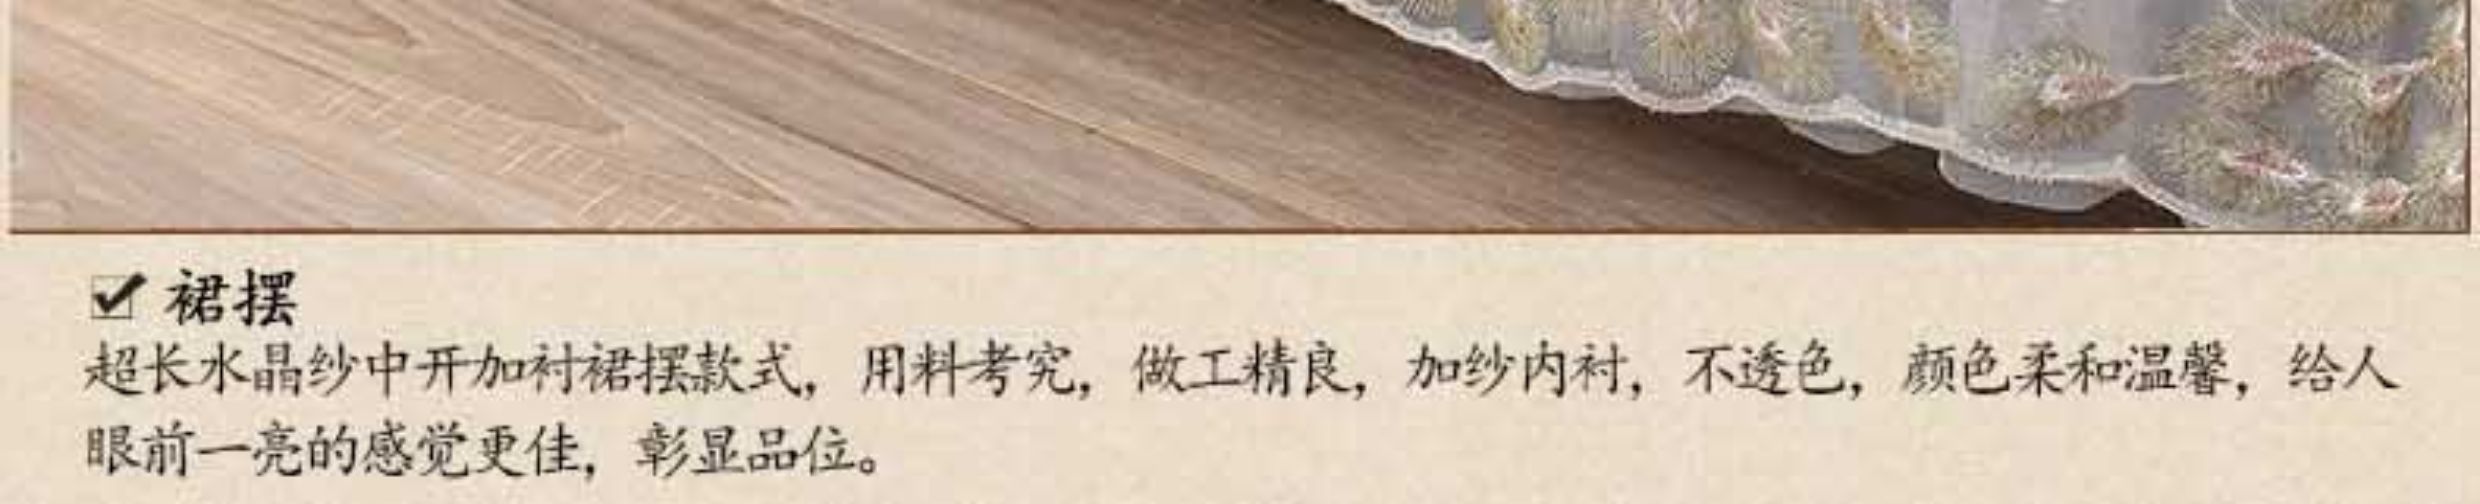 裙摆
超长水晶纱中开加衬裙摆款式，用料考究，做工精良，加纱内衬，不透色，颜色柔和温馨，给人
眼前一亮的感觉更佳，彰显品位。